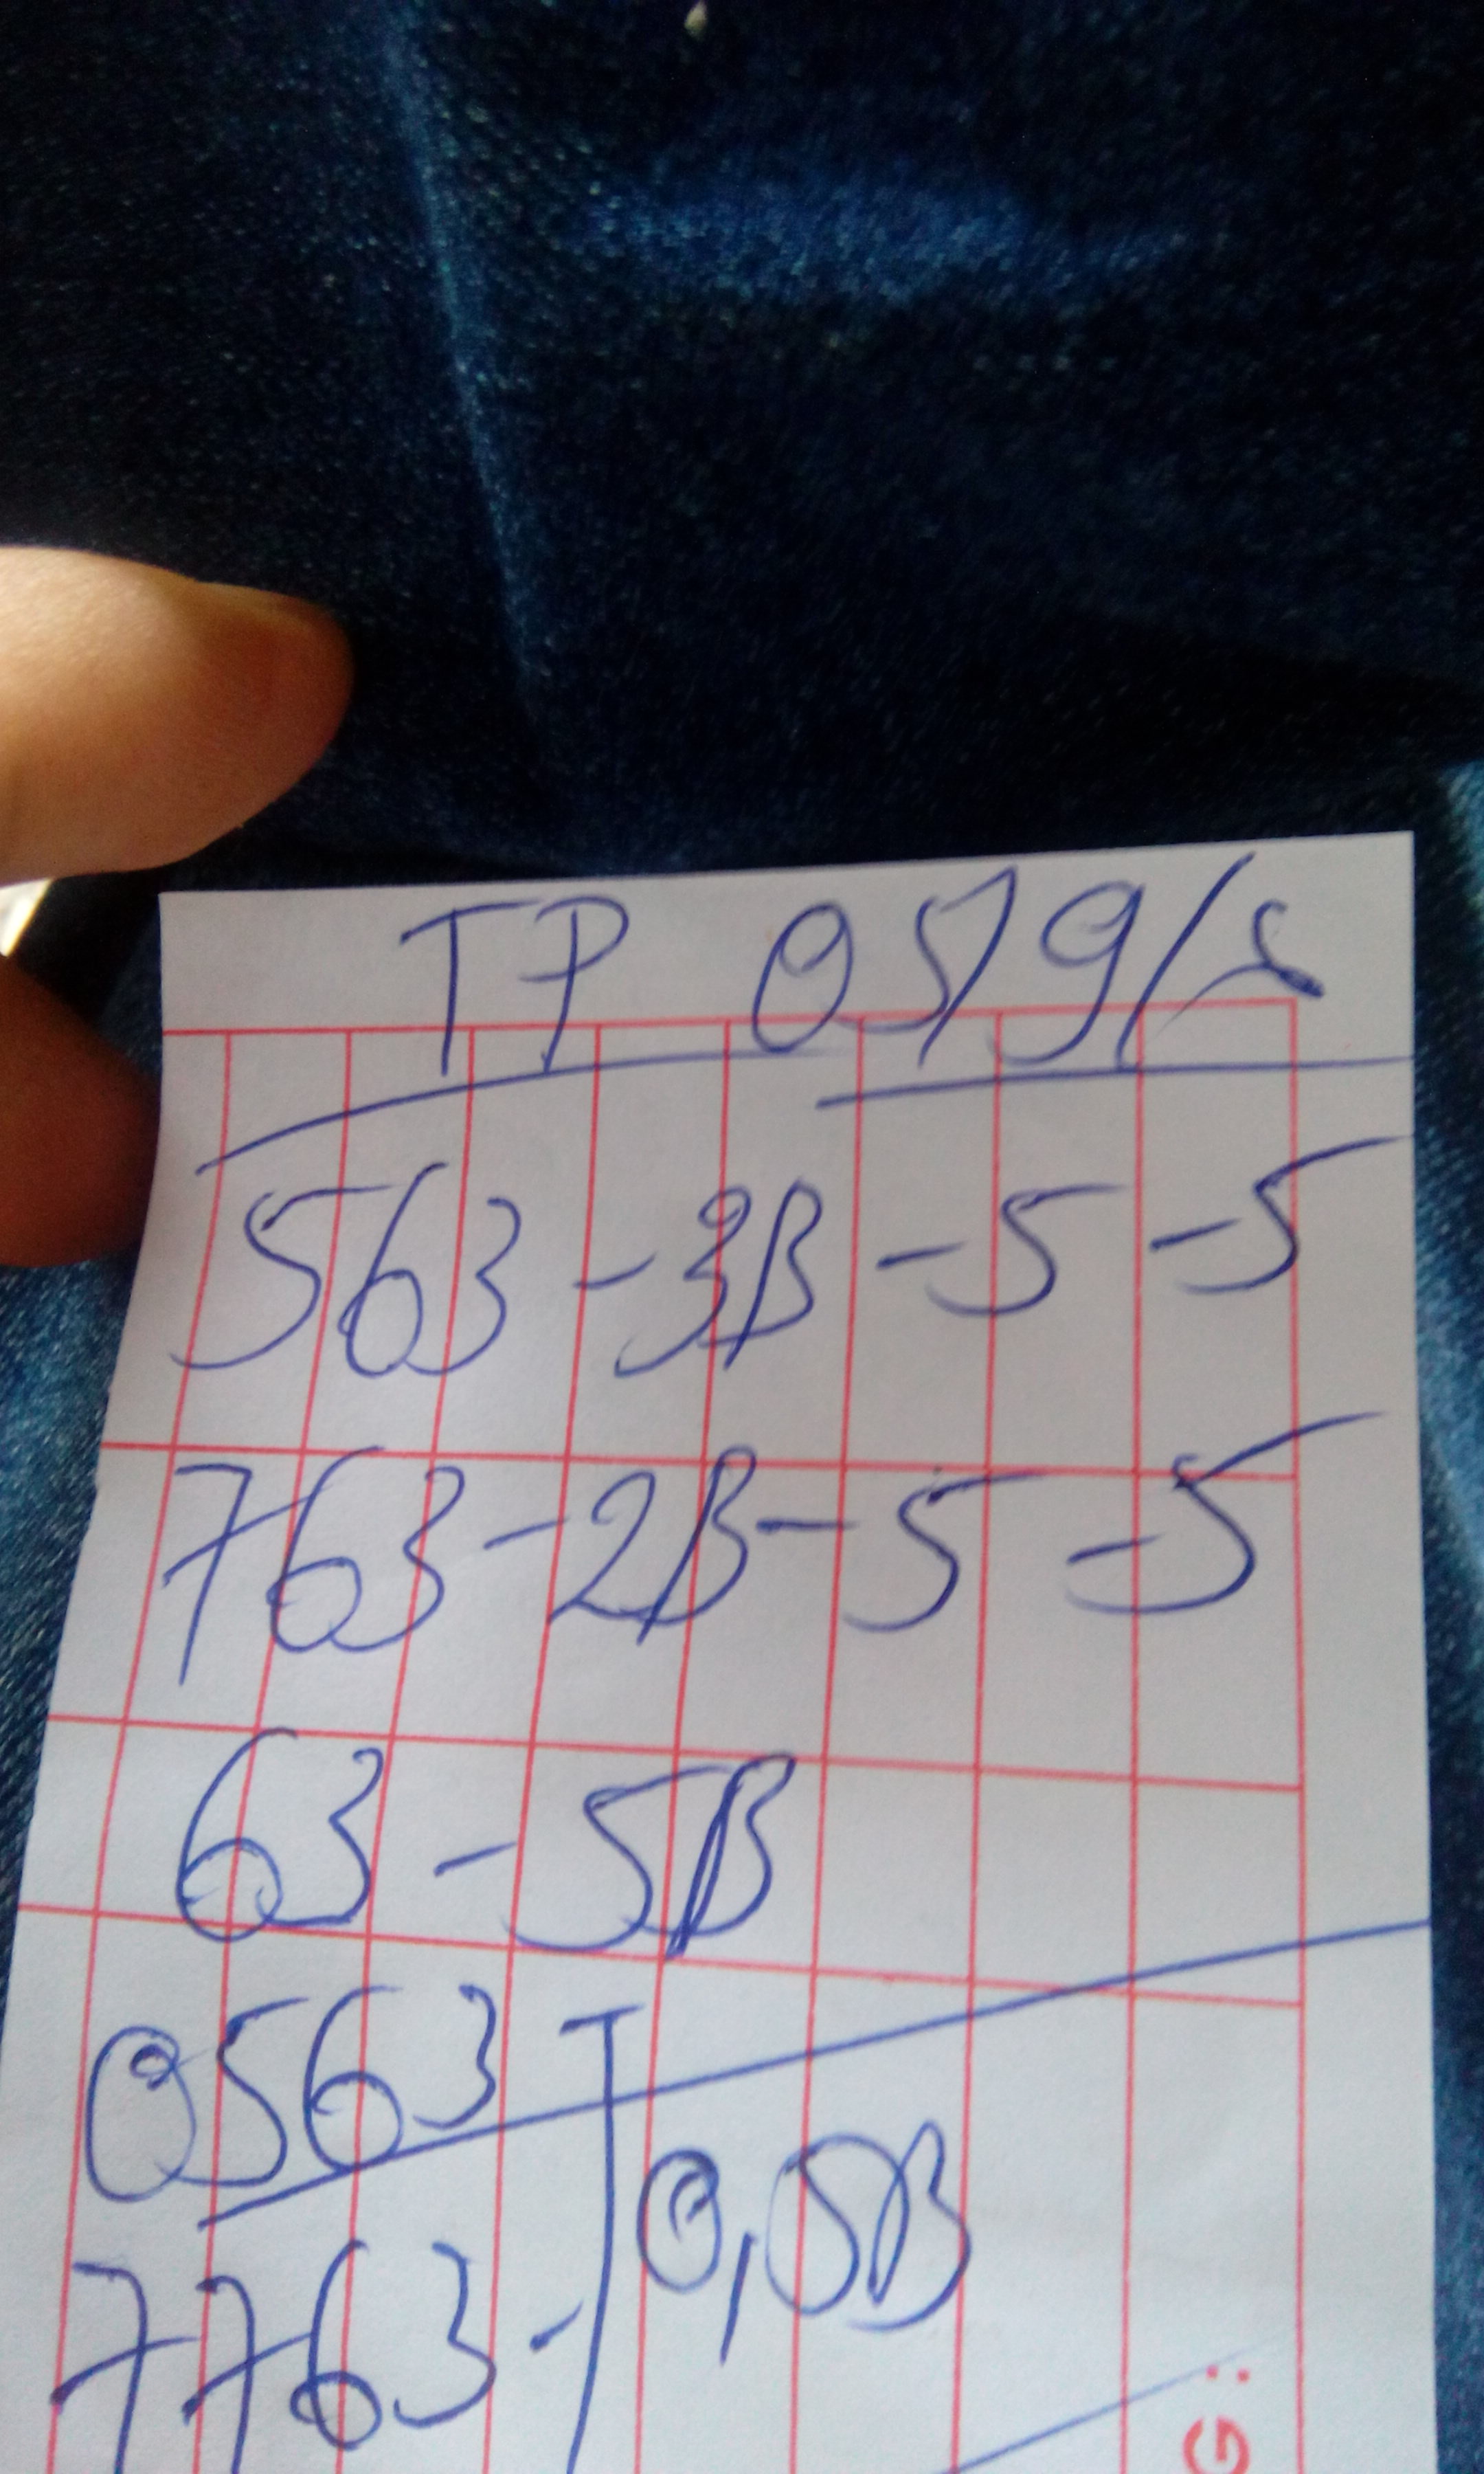 TP 05/9/s
563 - 3B - 5 - 5
763 - 2B - 5 - 5
63 - 5B
0563
7763 - 0,5B
G: